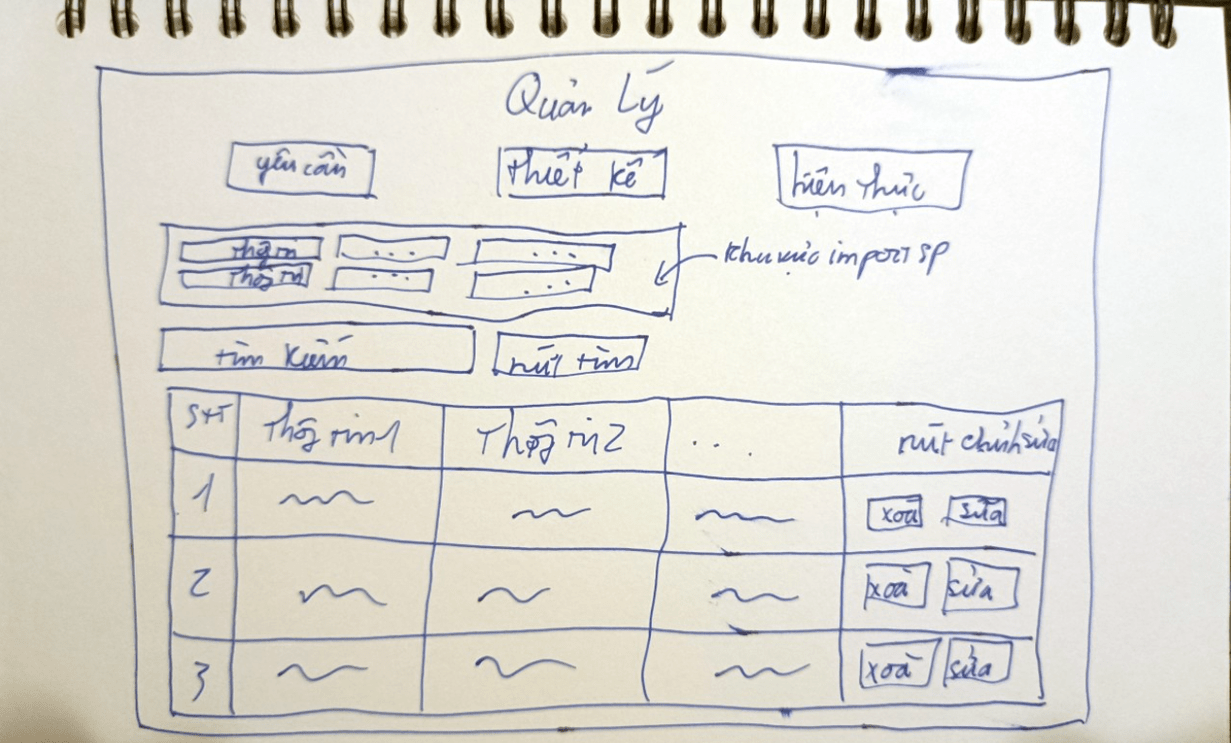 Quản Lý
yêu cầu
thiết kế
hiện thực
thôg tin
...
...
khu vực import SP
thôg tin
...
...
tìm kiếm
nút tìm
STT
Thôg tin 1
Thôg tin 2
...
nút chỉnh sửa
1
xoá
sửa
2
xoá
sửa
3
xoá
sửa